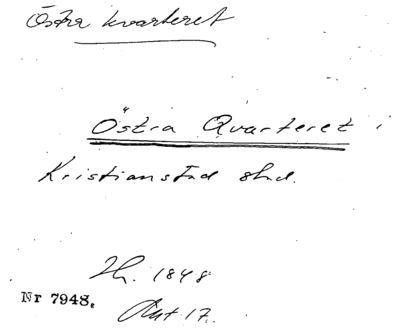 Östra kvarteret
Östra Qvarteret i
Kristianstad stad.
Th. 1848
Nr 7948.
Akt 17.